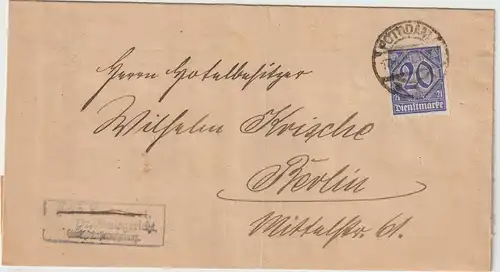 POTSDAM
21 20 21
Dienstmarke
Herrn Hotelbesitzer
Wilhelm Krische
Berlin
Mittelstr. 61.